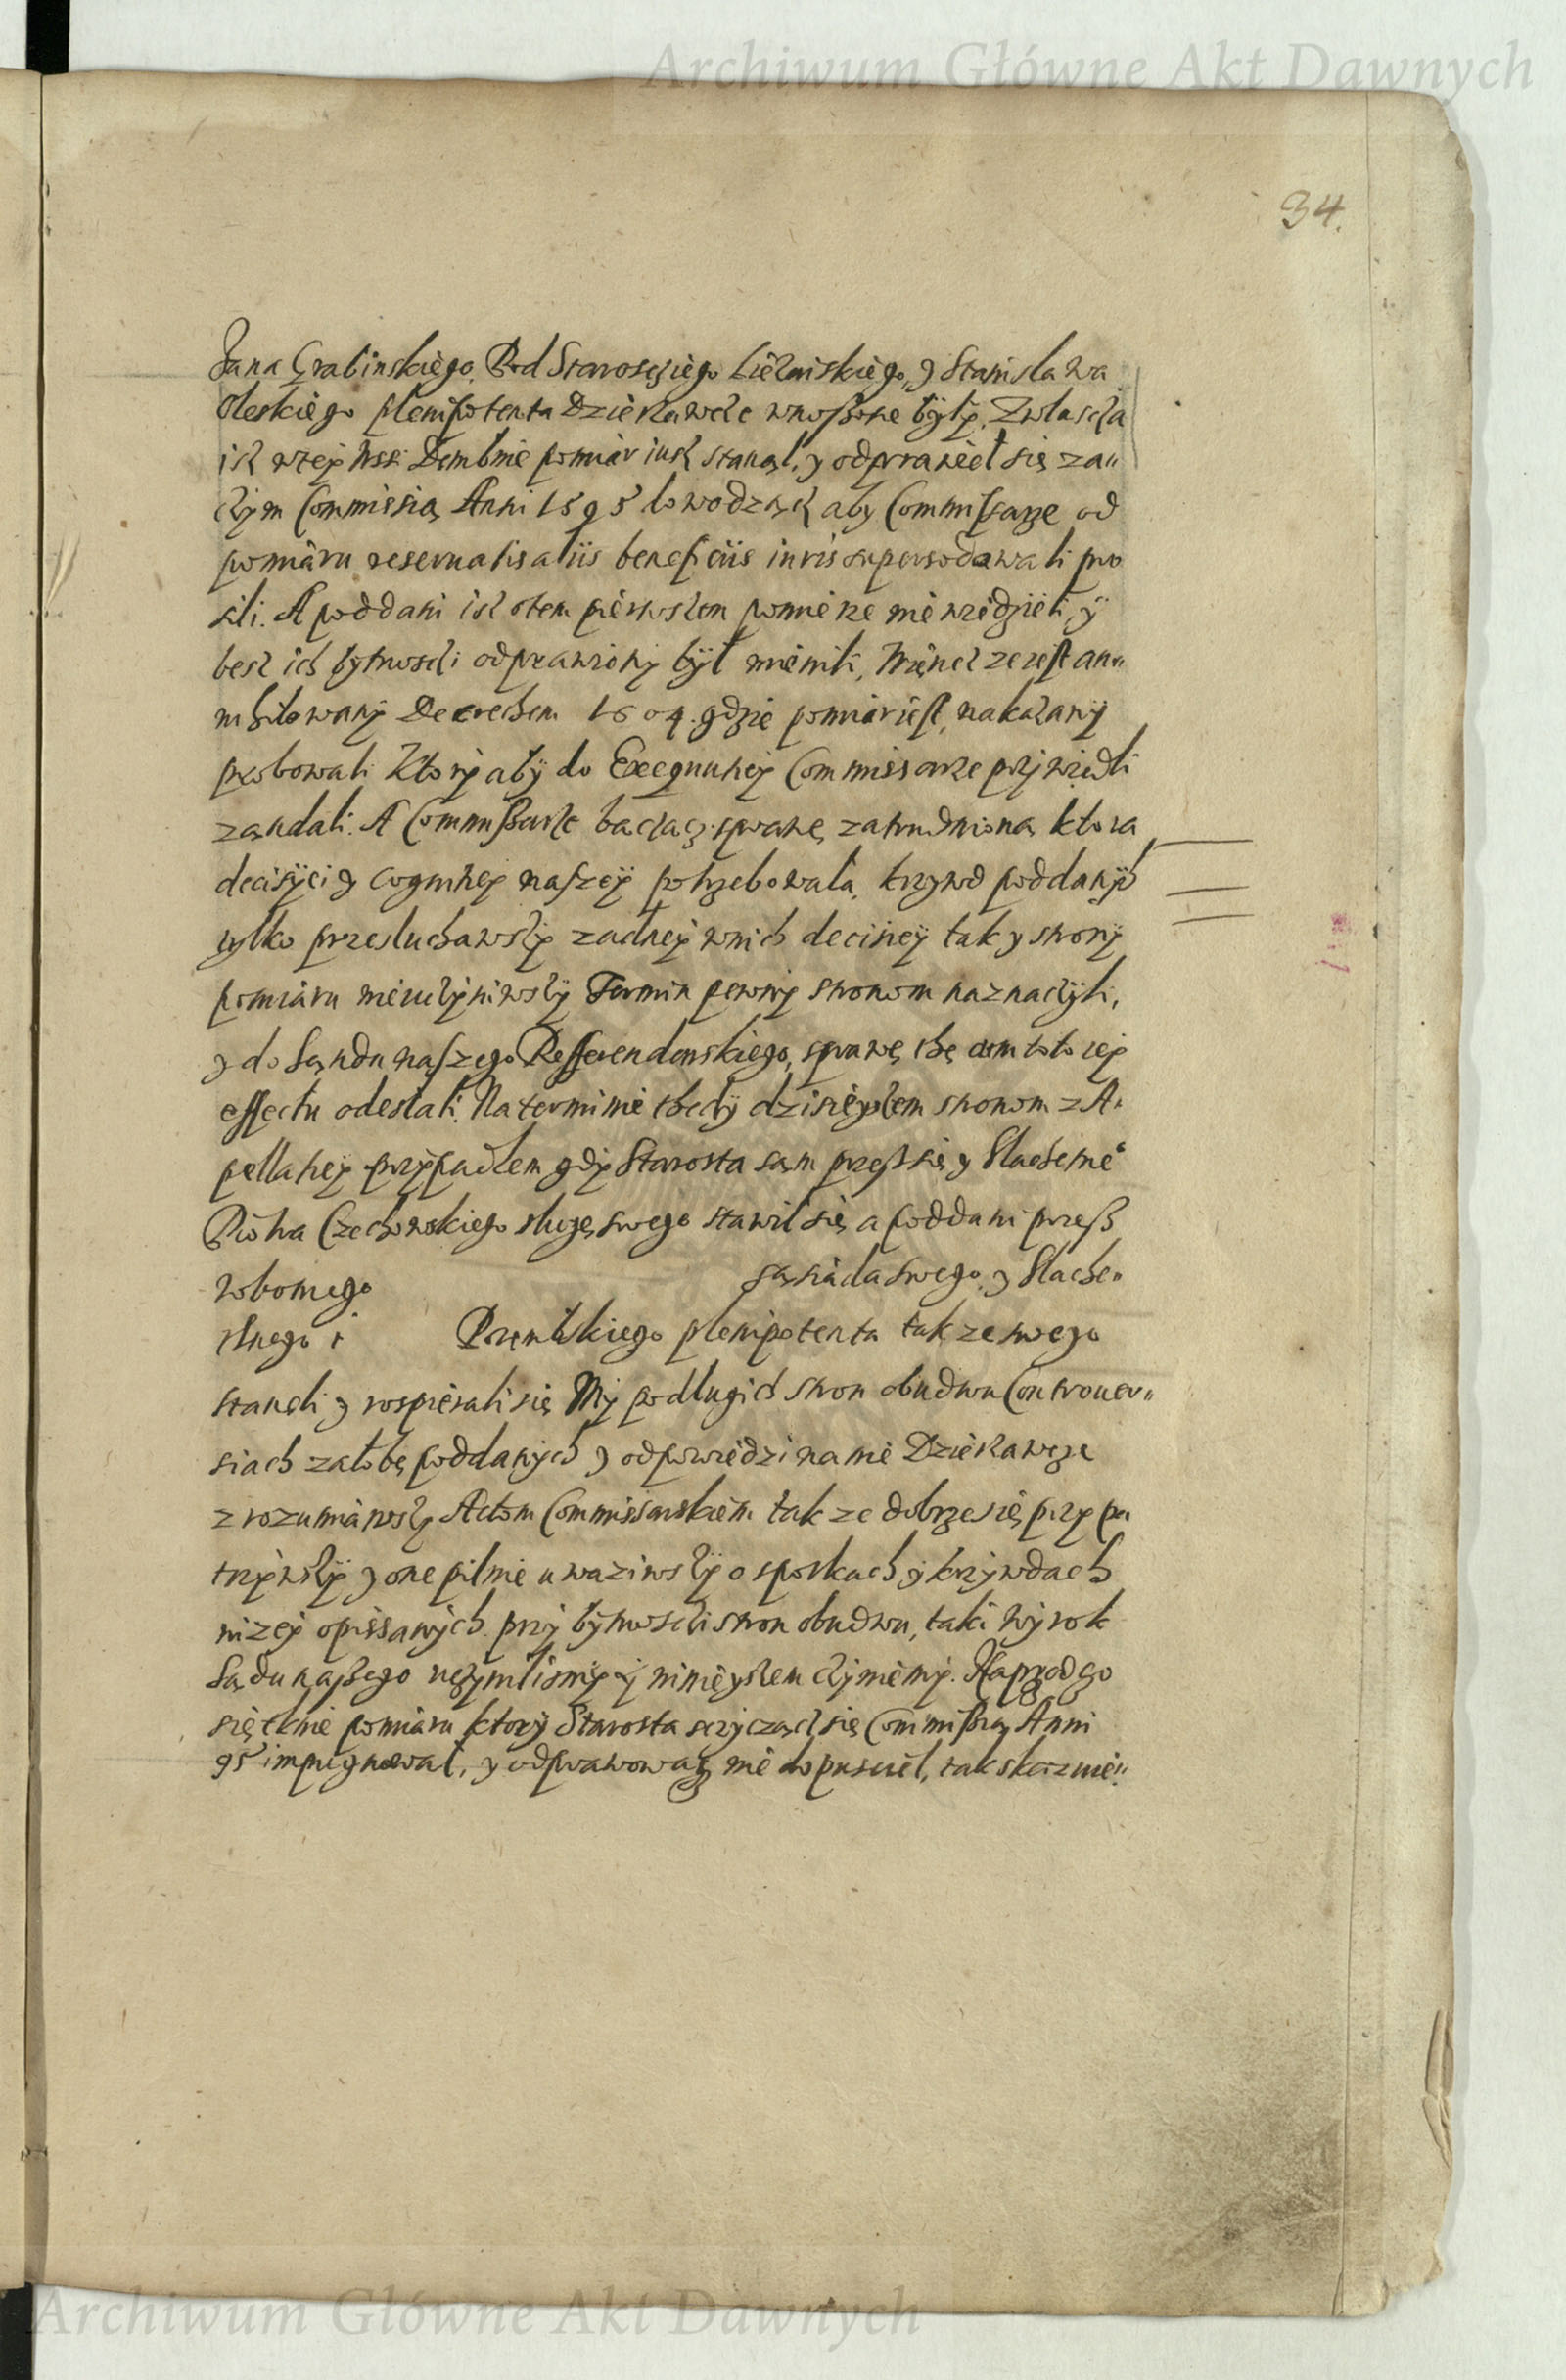 Archiwum Główne Akt Dawnych
34.
Jana Grabinskiego Pod Starosciego Lezaiskiego, y Stanisława
Oleskiego plenipotenta Dzierzawcze wnoszone były, Zwłascza
isz wtey Wsi Dembnie pomiar iusz stanął, y odprawieł się za„
czym Commissią Anni 1595 dowodząc aby Commissarze od
pomiaru reseruatis aliis beneficiis iuris supersedowali pro
sili. A poddani isz otem pierwszem pomierze niewiedzieli y
besz ich bytnosci odprawiony był mienili, Więncz ze iest an„
nihilowany Decretem 1604. gdzie pomiar iest nakazany
probowali Ktory aby do Exequutiey Commissarze przywiedli
ządali. A Commissarze bacząc sprawę zatrudnioną ktora
decisyiei y cognitiey naszey potrzebowała, krzywd poddanych
tylko przesłuchawszy zadney wnich decisiey tak y strony
pomiaru nieuczyniwszy Termin pewny stronom naznaczyli,
y do Sąndu naszego Refferendarskiego, sprawę thę cum toto rey
effectu odesłali. Na terminie thedy dzisieyszem stronom z A„
pellatiey przypadłem gdy Starosta sam przesz się y Slachetne°
Piotra Czechowskiego sługę swego stawił się a poddani przesz
robotnego sąsiada swego, y Slache„
tnego Prembskiego plenipotenta takze swego
stanęli y rospierali się My podług ich stron obudwu Controuer„
siach załobę poddanych y odpowiedzi na nie Dzierzawcze
zrozumiawszy Actom Commissarskiem takze dobrze się przypa
trzywszy y one pilnie uwaziwszy o sporkach y krzywdach
nizey opissanych przy bytnosci stron obudwu, taki wyrok
Sądu naszego uczynilismy y ninieyszem czyniemy. Naprzod co
się tknie pomiaru ktory Starosta sczycząc się Commissią Anni
95 impugnował, y odprawować nie dopuscieł, tak skaznie„
Archiwum Główne Akt Dawnych